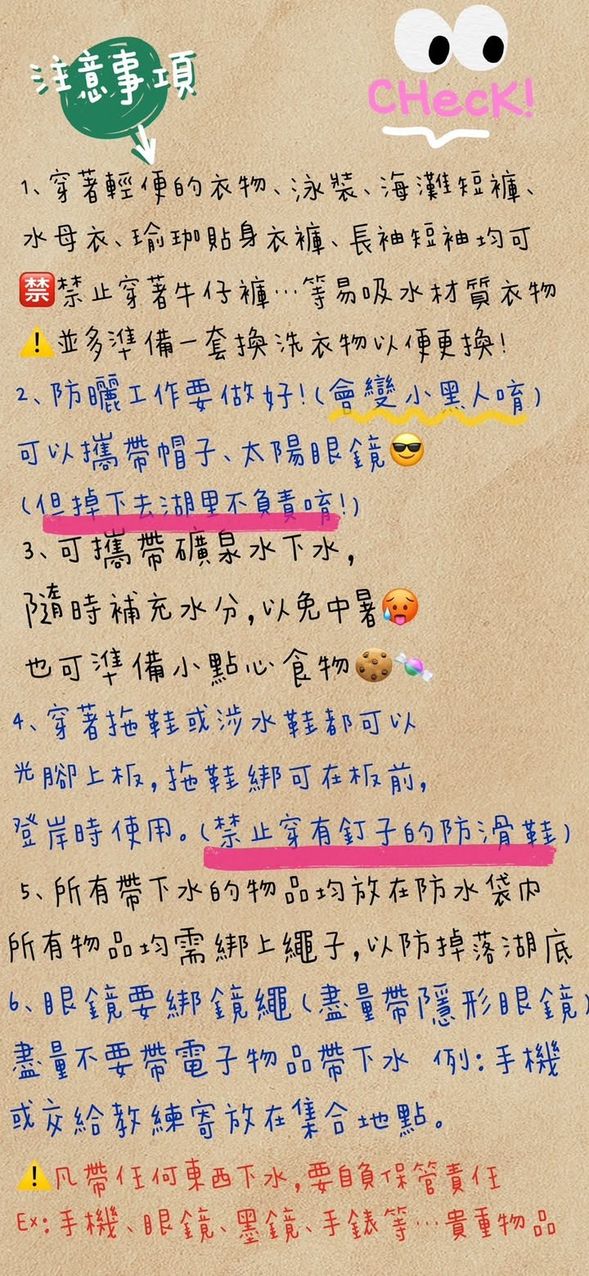 注意事項
CHecK!
1、穿著輕便的衣物、泳裝、海灘短褲、
水母衣、瑜珈貼身衣褲、長袖短袖均可
🈲禁止穿著牛仔褲…等易吸水材質衣物
⚠️並多準備一套換洗衣物以便更換!
2、防曬工作要做好!(會變小黑人唷)
可以攜帶帽子、太陽眼鏡😎
(但掉下去湖里不負責唷!)
3、可攜帶礦泉水下水,
隨時補充水分,以免中暑🥵
也可準備小點心食物🍪🍬
4、穿著拖鞋或涉水鞋都可以
光腳上板,拖鞋綁可在板前,
登岸時使用。(禁止穿有釘子的防滑鞋)
5、所有帶下水的物品均放在防水袋內
所有物品均需綁上繩子,以防掉落湖底
6、眼鏡要綁鏡繩(盡量帶隱形眼鏡)
盡量不要帶電子物品帶下水 例:手機
或交給教練寄放在集合地點。
⚠️凡帶任何東西下水,要自負保管責任
Ex:手機、眼鏡、墨鏡、手錶等…貴重物品